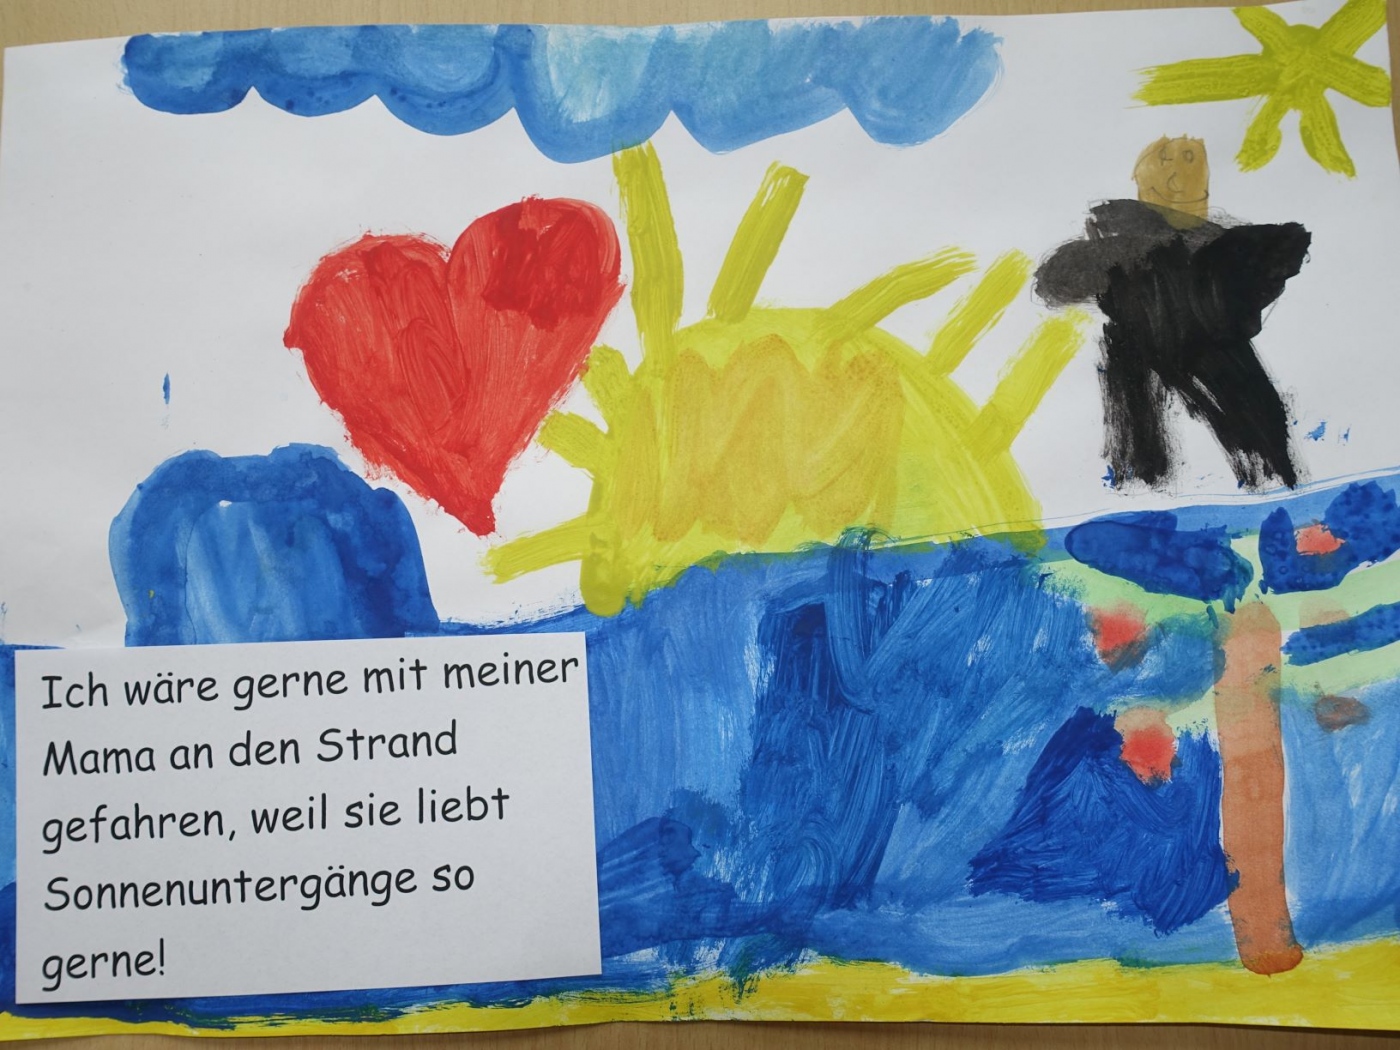 Ich wäre gerne mit meiner
Mama an den Strand
gefahren, weil sie liebt
Sonnenuntergänge so
gerne!